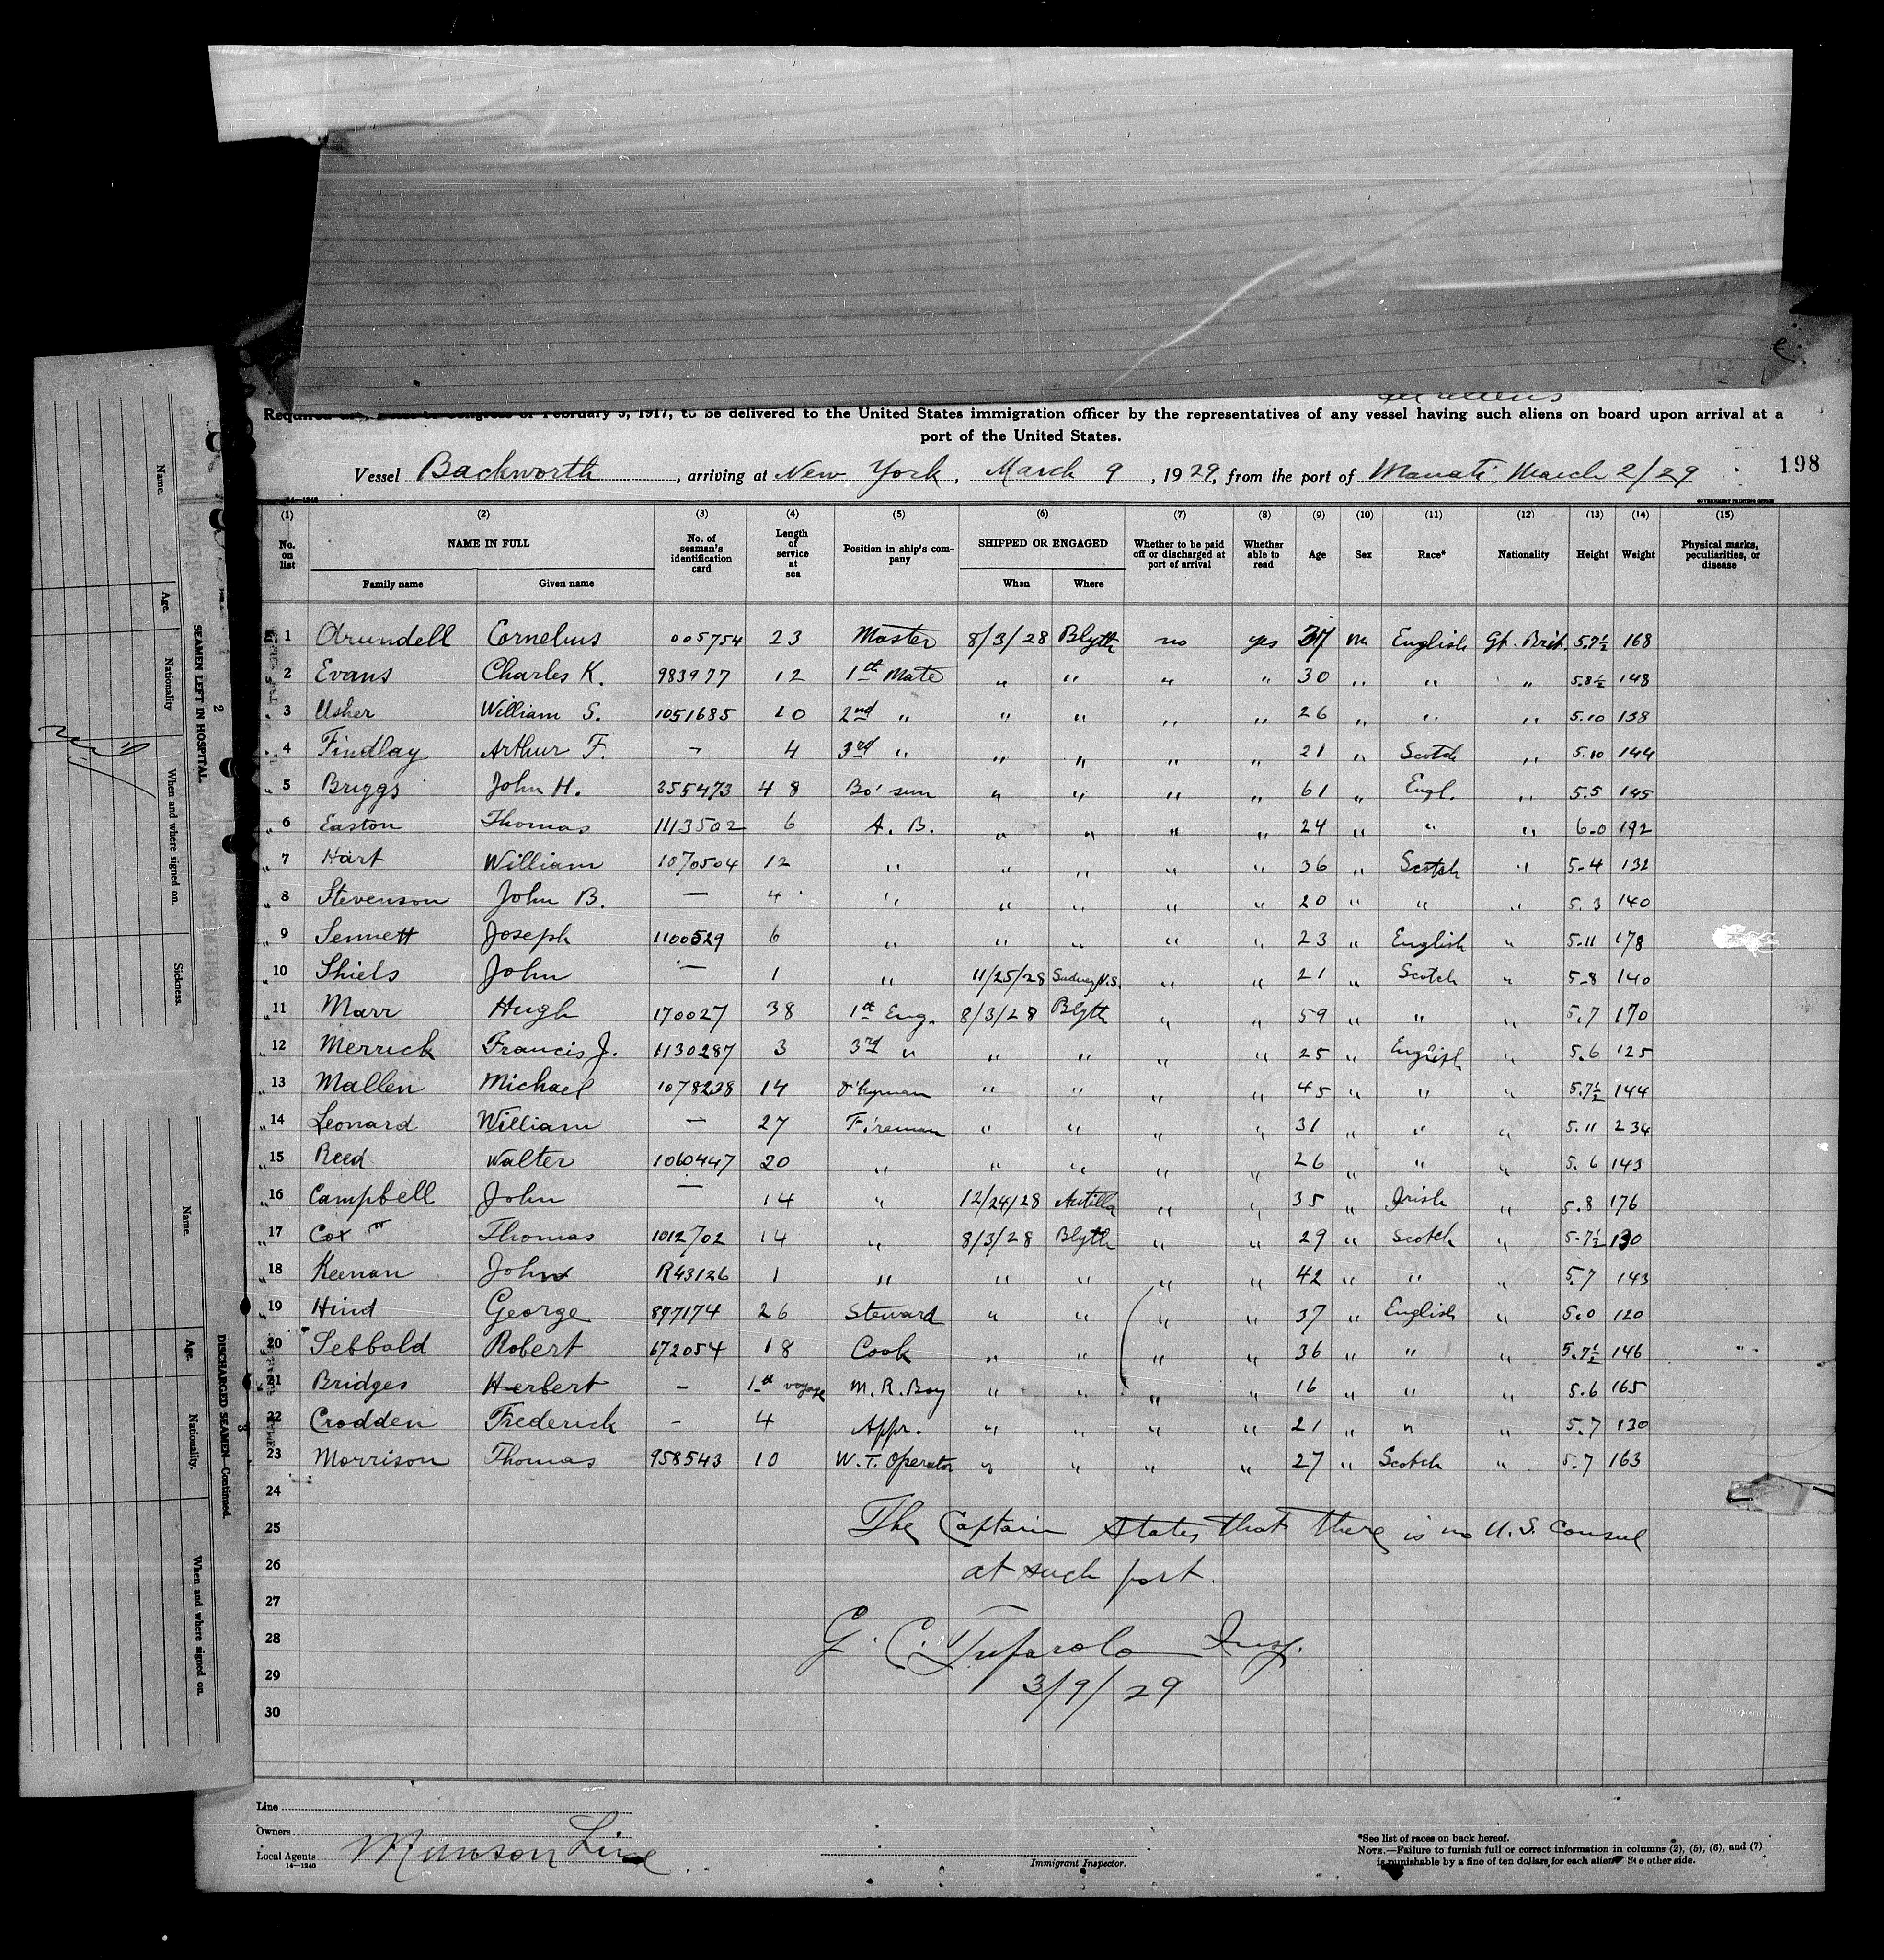 Required … of February 5, 1917, to be delivered to the United States immigration officer by the representatives of any vessel having such aliens on board upon arrival at a
port of the United States.
Vessel Backworth, arriving at New York, March 9, 1929, from the port of Manati March 2/29
198
14—1240 GOVERNMENT PRINTING OFFICE
(1) (2) (3) (4) (5) (6) (7) (8) (9) (10) (11) (12) (13) (14) (15)
No. on list NAME IN FULL Family name Given name No. of seaman's identification card Length of service at sea Position in ship's company SHIPPED OR ENGAGED When Where Whether to be paid off or discharged at port of arrival Whether able to read Age Sex Race* Nationality Height Weight Physical marks, peculiarities, or disease
1 Arundell Cornelius 005754 23 Master 8/3/28 Blyth no yes 37 m English Gt. Brit. 5.7½ 168
2 Evans Charles K. 983977 12 1th Mate " " " " 30 " " " 5.8½ 148
3 Usher William S. 1051685 10 2nd " " " " " 26 " " " 5.10 138
4 Findlay Arthur F. - 4 3rd " " " " " 21 " Scotch " 5.10 144
5 Briggs John H. 355473 48 Bo'sun " " " " 61 " Engl. " 5.5 145
6 Easton Thomas 1113502 6 A. B. " " " " 24 " " " 6-0 192
7 Hart William 1070504 12 " " " " " 36 " Scotch " 5-4 132
8 Stevenson John B. — 4 " " " " " 20 " " " 5.3 140
9 Sennett Joseph 1100529 6 " " " " " 23 " English " 5-11 178
10 Shiels John — 1 " 11/25/28 Sydney N.S. " " 21 " Scotch " 5-8 140
11 Marr Hugh 170027 38 1th Eng. 8/3/28 Blyth " " 59 " " " 5.7 170
12 Merrick Francis J. 1130287 3 3rd " " " " " 25 " English " 5.6 125
13 Mallen Michael 1078238 14 D'kyman " " " " 45 " " " 5.7½ 144
14 Leonard William — 27 Fireman " " " " 31 " " " 5.11 234
15 Reed Walter 1060447 20 " " " " " 26 " " " 5.6 143
16 Campbell John — 14 " 12/24/28 Antilla " " 35 " Irish " 5.8 176
17 Cox Thomas 1012702 14 " 8/3/28 Blyth " " 29 " Scotch " 5-7½ 130
18 Keenan John R43126 1 " " " " " 42 " " " 5.7 143
19 Hind George 877174 26 Steward " " " " 37 " English " 5.0 120
20 Sebbald Robert 672054 18 Cook " " " " 36 " " " 5.7½ 146
21 Bridges Herbert - 1st voyage M. R. Boy " " " " 16 " " " 5.6 165
22 Crodden Frederick - 4 Appr. " " " " 21 " " " 5.7 130
23 Morrison Thomas 958543 10 W. T. Operator " " " " 27 " Scotch " 5.7 163
24
25 The Captain states that there is no U.S. Consul
26 at such port.
27
28 G. C. Insp.
29 3/9/29
30
Line
Owners
Local Agents Munson Line
14—1240
Immigrant Inspector.
*See list of races on back hereof.
NOTE.—Failure to furnish full or correct information in columns (2), (5), (6), and (7)
is punishable by a fine of ten dollars for each alien. See other side.
2
SEAMEN LEFT IN HOSPITAL
Name. Age. Nationality When and where signed on. Sickness.
3
DISCHARGED SEAMEN—Continued.
Name. Age. Nationality. When and where signed on.